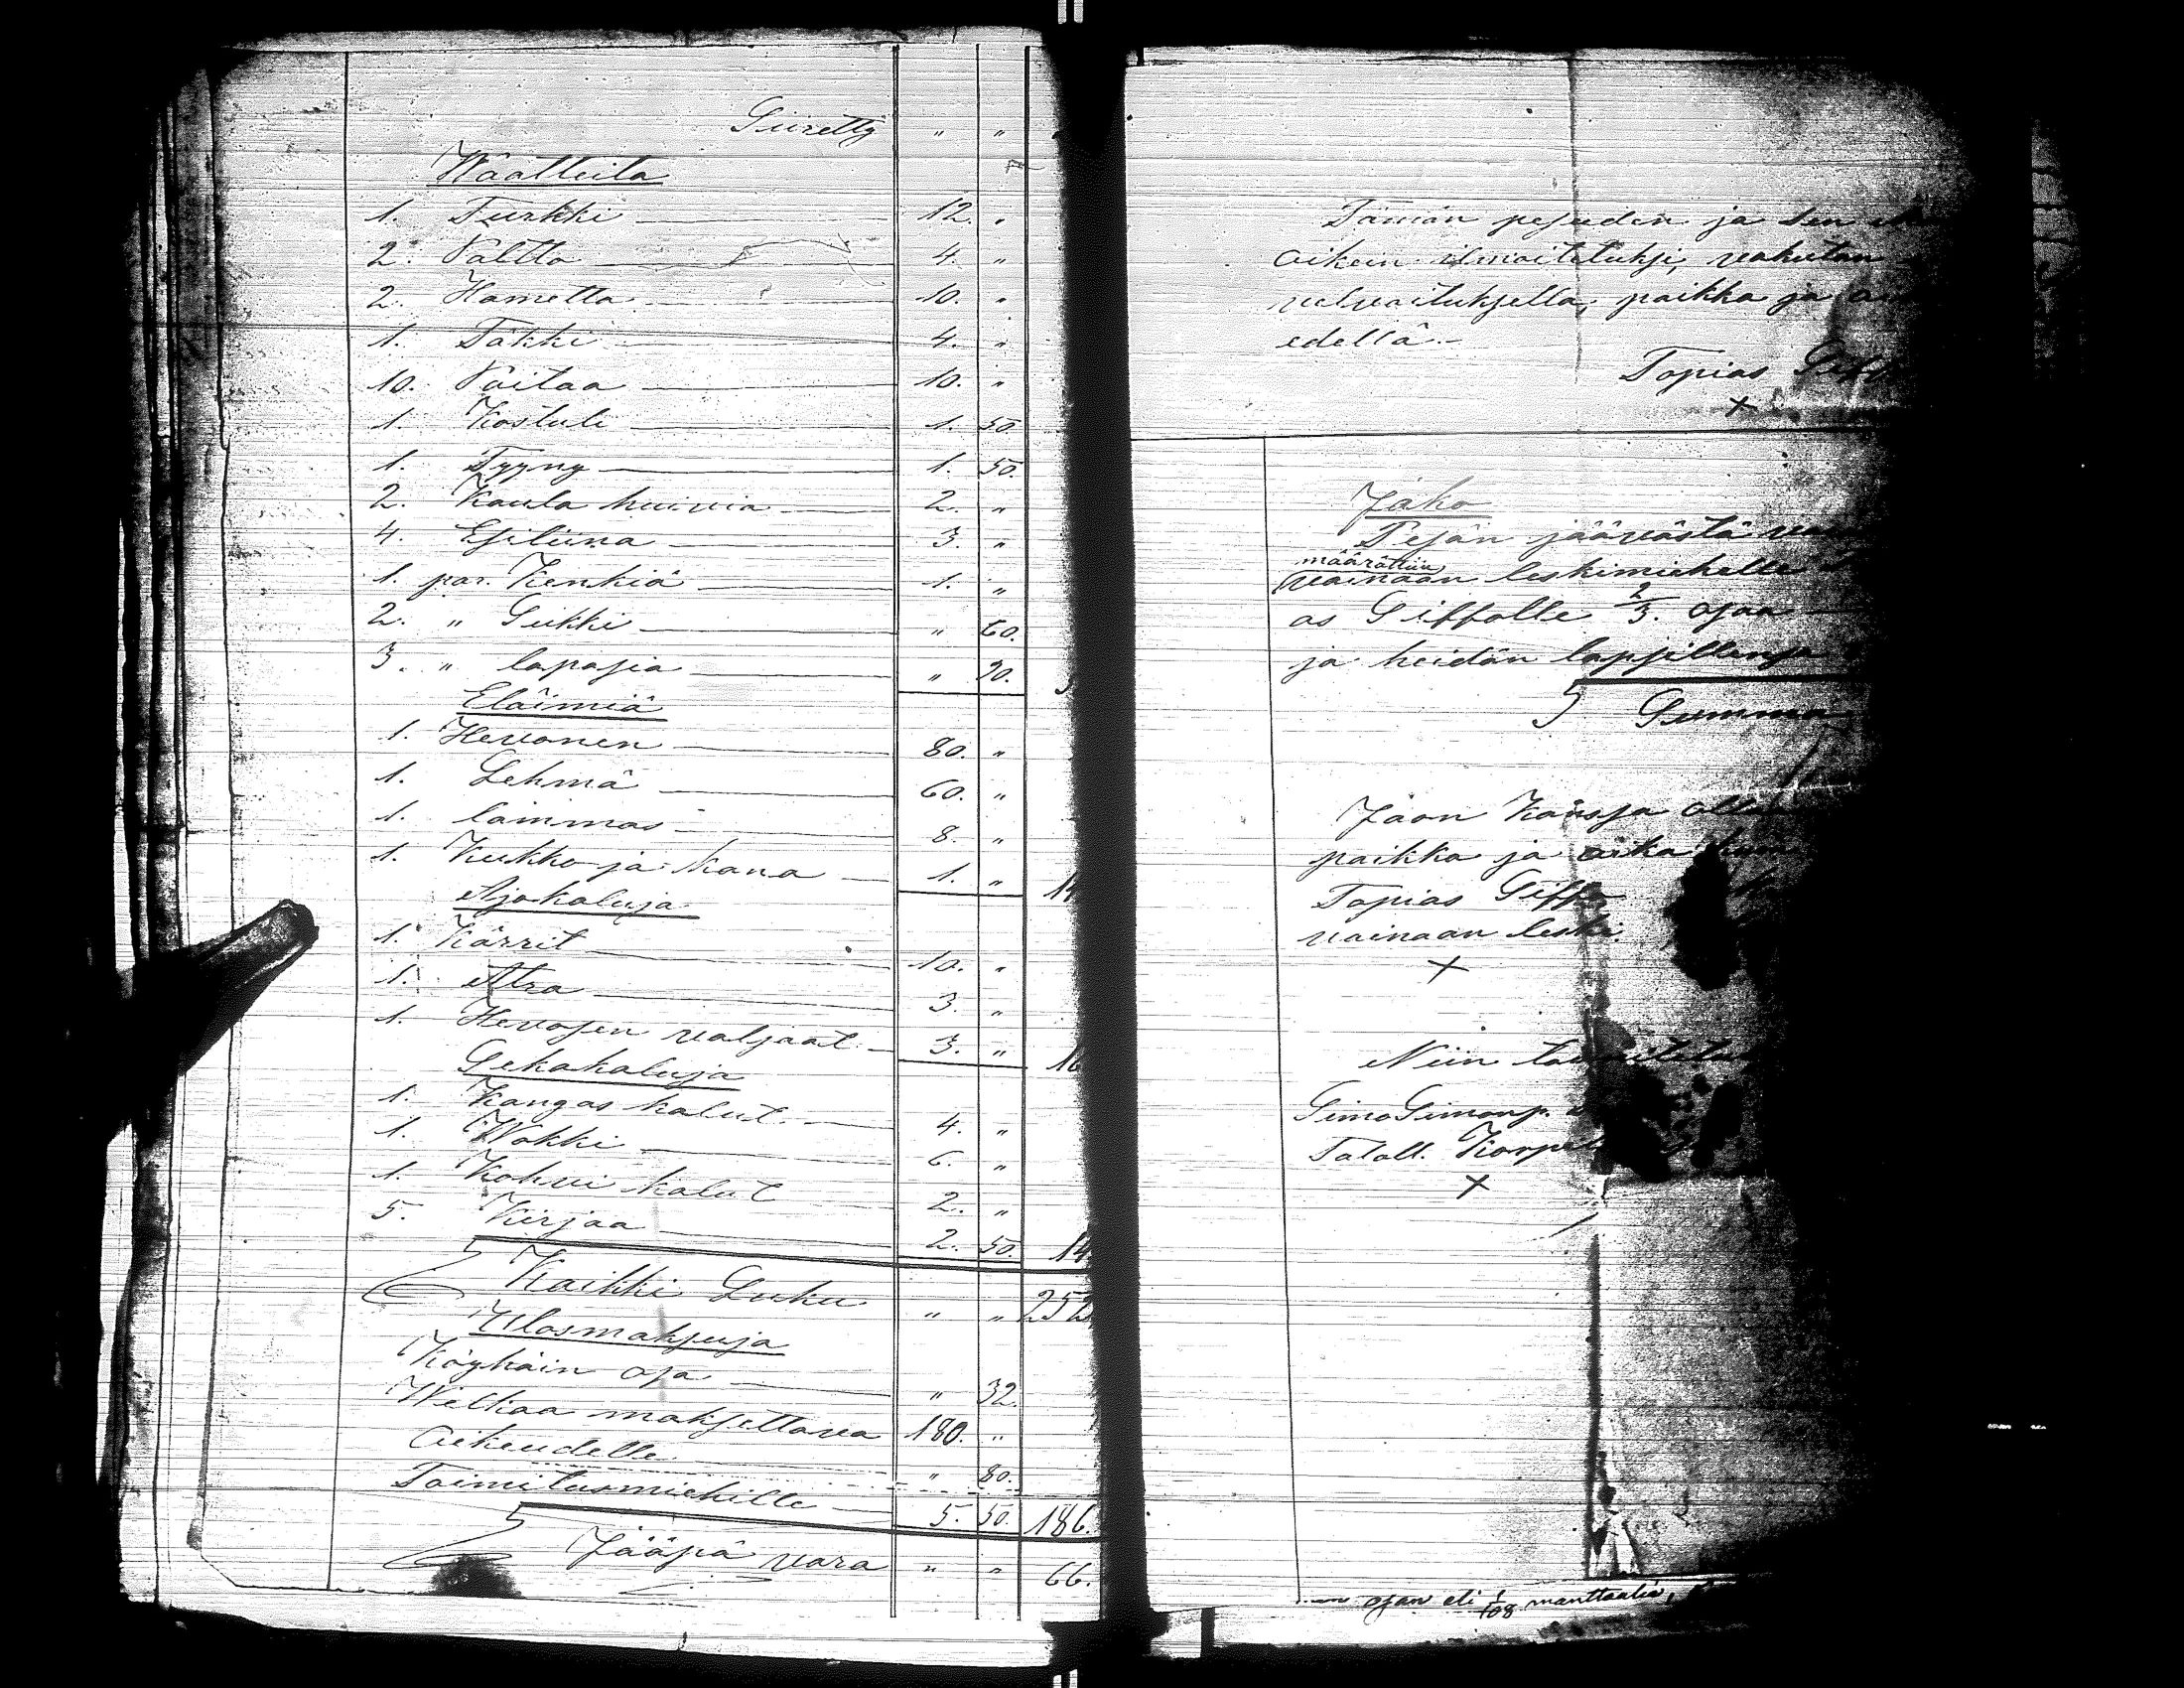 Siiretty " "
Waatteita
1. Turkki 12. "
2. Palttoa 4. "
2. Hametta 10. "
1. Täkki 4. "
10. Paitaa 10. "
1. Kostuli 1. 50.
1. Tyyny 1. 50.
2. Kaula huivia 2. "
4. Esiliina 3. "
1. par. Kenkiä 1. "
2. " Sukki " 60.
3. " lapasia " 90.
Eläimiä
1. Hevonen 80. "
1. Lehmä 60. "
1. lammas 8. "
1. Kukko ja kana 1. "
Ajokaluja
1. Kärrit 10. "
1. Atra 3. "
1. Hevosen valjaat 3. " 16
Sekakaluja
1. Kangas kalut 4. "
1. Wokki 6. "
1. Kohvi kalut 2. "
5. Kirjaa 2. 50. 14.
Kaikki Luku " " 252
Ulosmaksuja
Köyhäin osa " 32
Welkaa maksettava 180. "
Oikeudelle " 80.
Toimitusmiehille 5. 50. 186.
Jääpä vara " " 66.
Tämän pesuden ja sen
oikein ilmoitetuksi, vakutan
velvoituksella, paikka ja
edellä.
Topias
X
Jako
Pesän jäävästä
määrättiin
vainaan leskimiehelle
as Siffalle 2/3. osaa
ja heidän lapsillensa
Summa
Jaon Kanssa
paikka ja aika
Topias Siffa
vainaan leski.
X
Niin
Simo Simonp.
Talall.
X
osan eli 1/108 manttaalia,